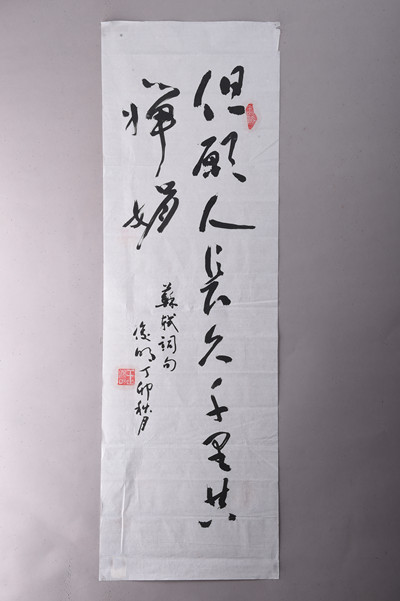 但願人長久千里共
嬋娟
蘇軾詞句
俊明丁卯秋月